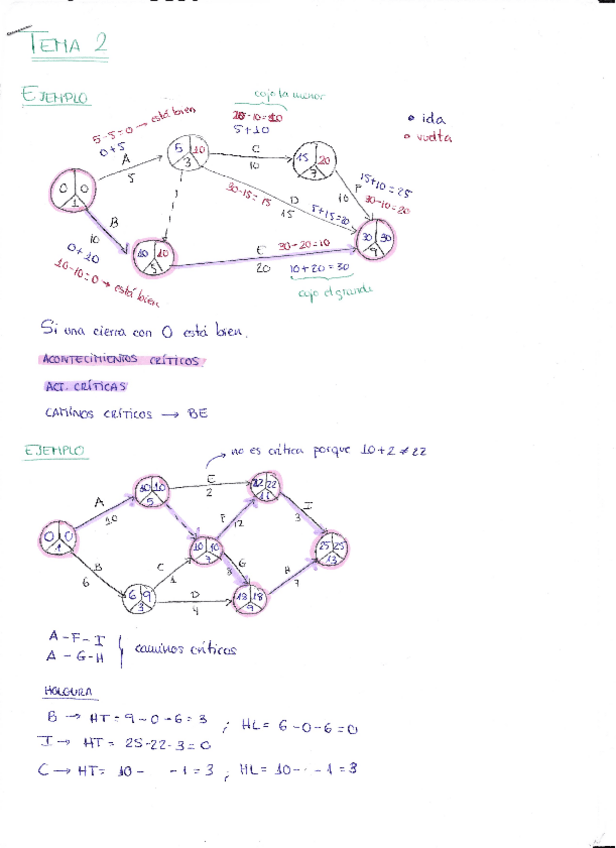 TEMA 2
EJEMPLO
cojo la menor
5-5=0 → está bien
0+5
20-10=10
5+10
• ida
• vuelta
A
5
5 10
3
C
10
15 20
7
F
10
15+10=25
30-10=20
0 0
1
B
10
0+10
10-10=0 → está bien
10 10
5
30-15=15
D
15
5+15=20
30 30
9
E
20
30-20=10
10+20=30
cojo el grande
Si una cierra con 0 está bien.
ACONTECIMIENTOS CRÍTICOS.
ACT. CRÍTICAS
CAMINOS CRÍTICOS → BE
EJEMPLO
no es crítica porque 10+2≠22
A
10
10 10
5
E
2
22 22
11
I
3
0 0
1
F
12
B
6
C
1
10 10
7
G
8
25 25
13
6 9
3
D
4
18 18
9
H
7
A-F-I
A-G-H
caminos críticos
HOLGURA
B → HT=9-0-6=3 ; HL=6-0-6=0
I → HT= 25-22-3=0
C → HT= 10- -1=3 ; HL=10- -1=3